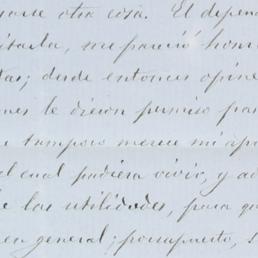 otra cosa. El depen
me pareció hom
tas; desde entonces opine
le dieron permiso pa
tampoco merece mi apo
el cual pudiera vivir, y ad
de las utilidades, para qu
en general; por supuesto, s